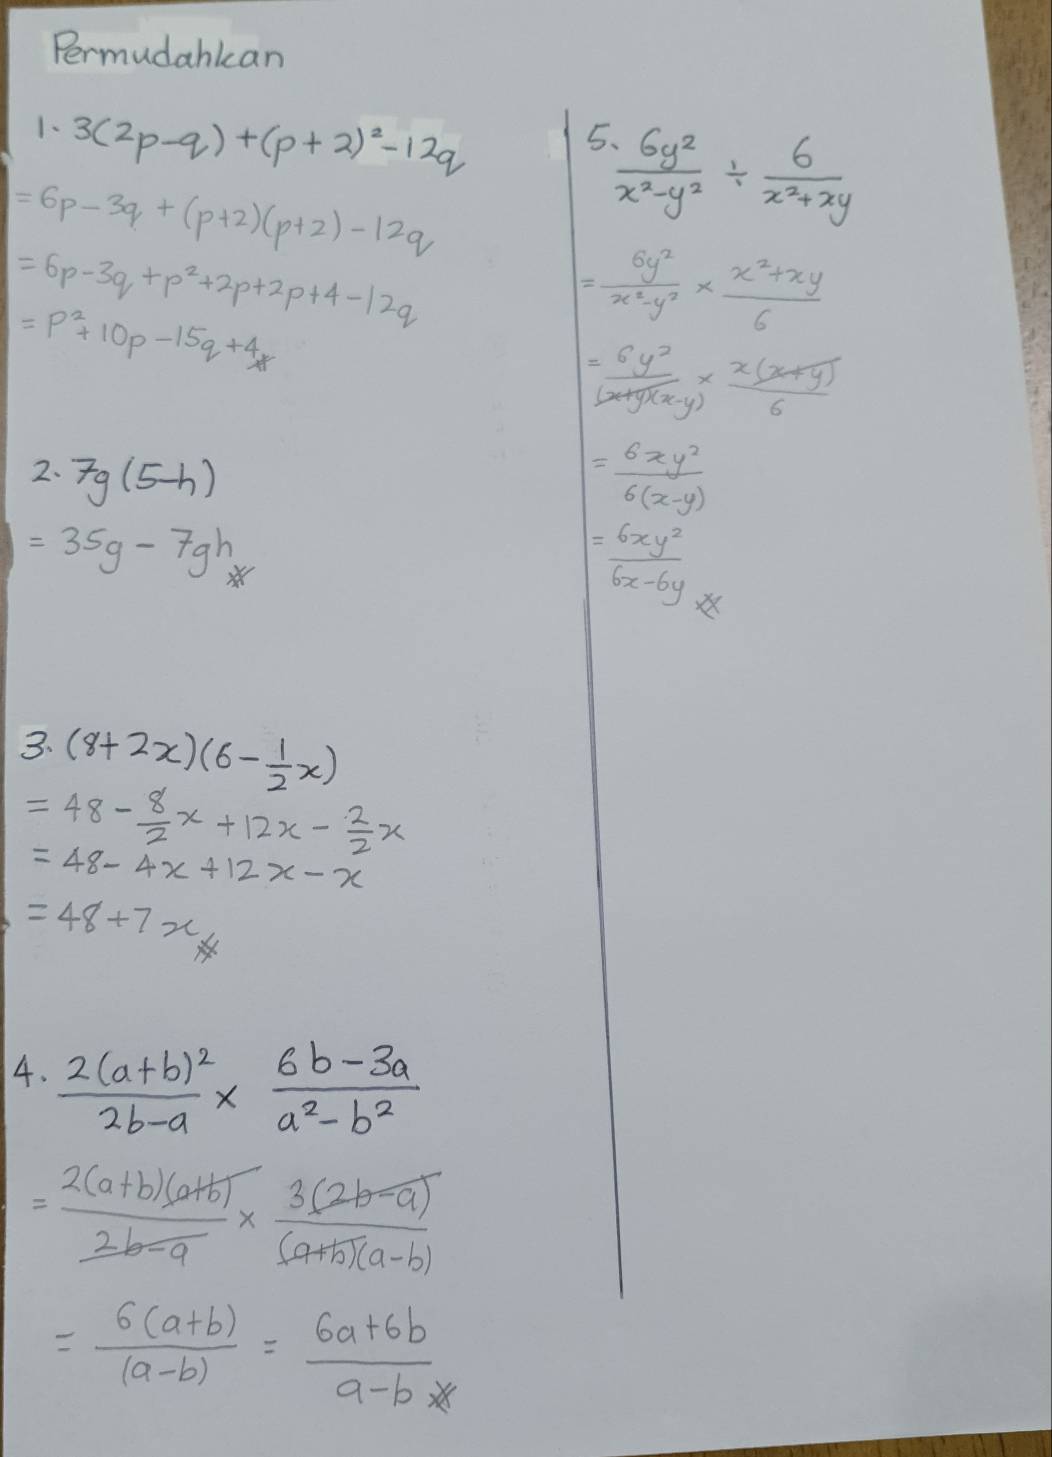 Permudahkan
1. 3(2p-q)+(p+2)²-12q
= 6p-3q+(p+2)(p+2)-12q
= 6p-3q+p²+2p+2p+4-12q
= p²+10p-15q+4
2. 7g(5-h)
= 35g-7gh
3. (8+2x)(6-1/2x)
= 48-8/2x+12x-2/2x
= 48-4x+12x-x
= 48+7x
4. 2(a+b)²/2b-a × 6b-3a/a²-b²
= 2(a+b)(a+b)/2b-a × 3(2b-a)/(a+b)(a-b)
= 6(a+b)/(a-b) = 6a+6b/a-b
5. 6y²/x²-y² ÷ 6/x²+xy
= 6y²/x²-y² × x²+xy/6
= 6y²/(x+y)(x-y) × x(x+y)/6
= 6xy²/6(x-y)
= 6xy²/6x-6y